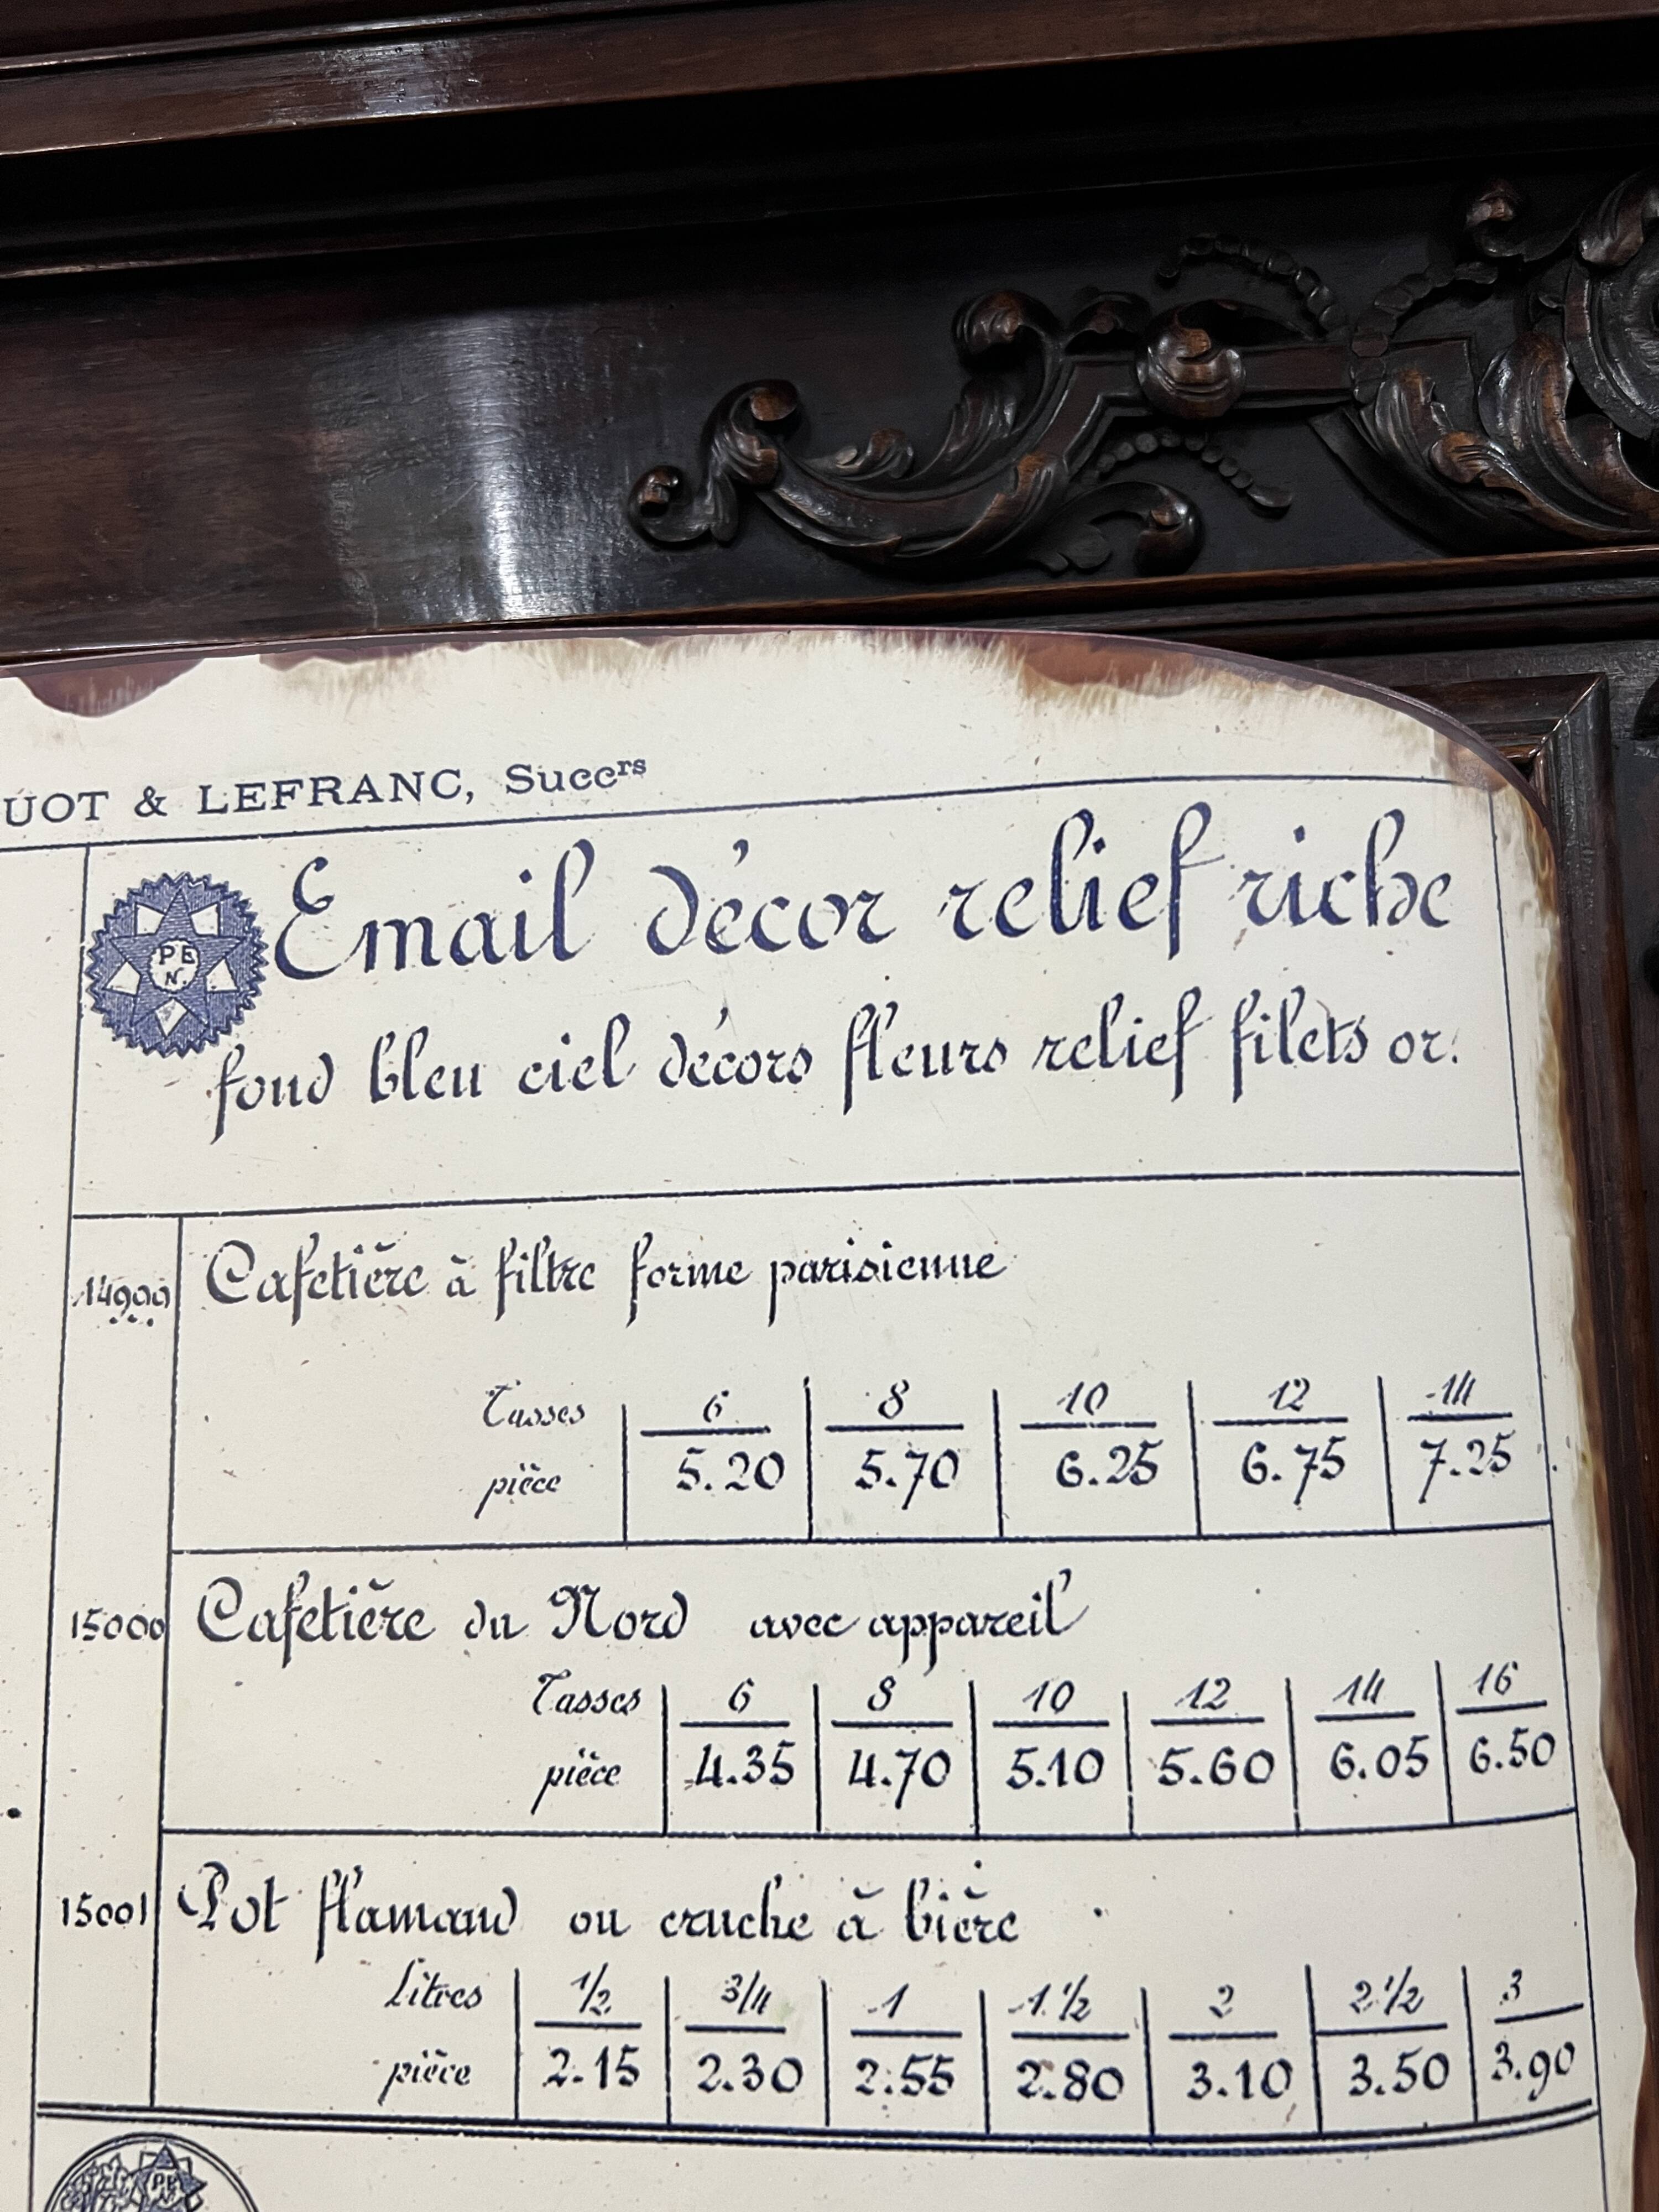 & LEFRANC, Succrs
P E
N.
Email décor relief riche
fond bleu ciel décors fleurs relief filets or.
14999 Cafetière à filtre forme parisienne
Tasses 6 8 10 12 14
pièce 5.20 5.70 6.25 6.75 7.25
15000 Cafetière du Nord avec appareil
Tasses 6 8 10 12 14 16
pièce 4.35 4.70 5.10 5.60 6.05 6.50
15001 Pot flamand ou cruche à bière
Litres 1/2 3/4 1 1 1/2 2 2 1/2 3
pièce 2.15 2.30 2.55 2.80 3.10 3.50 3.90